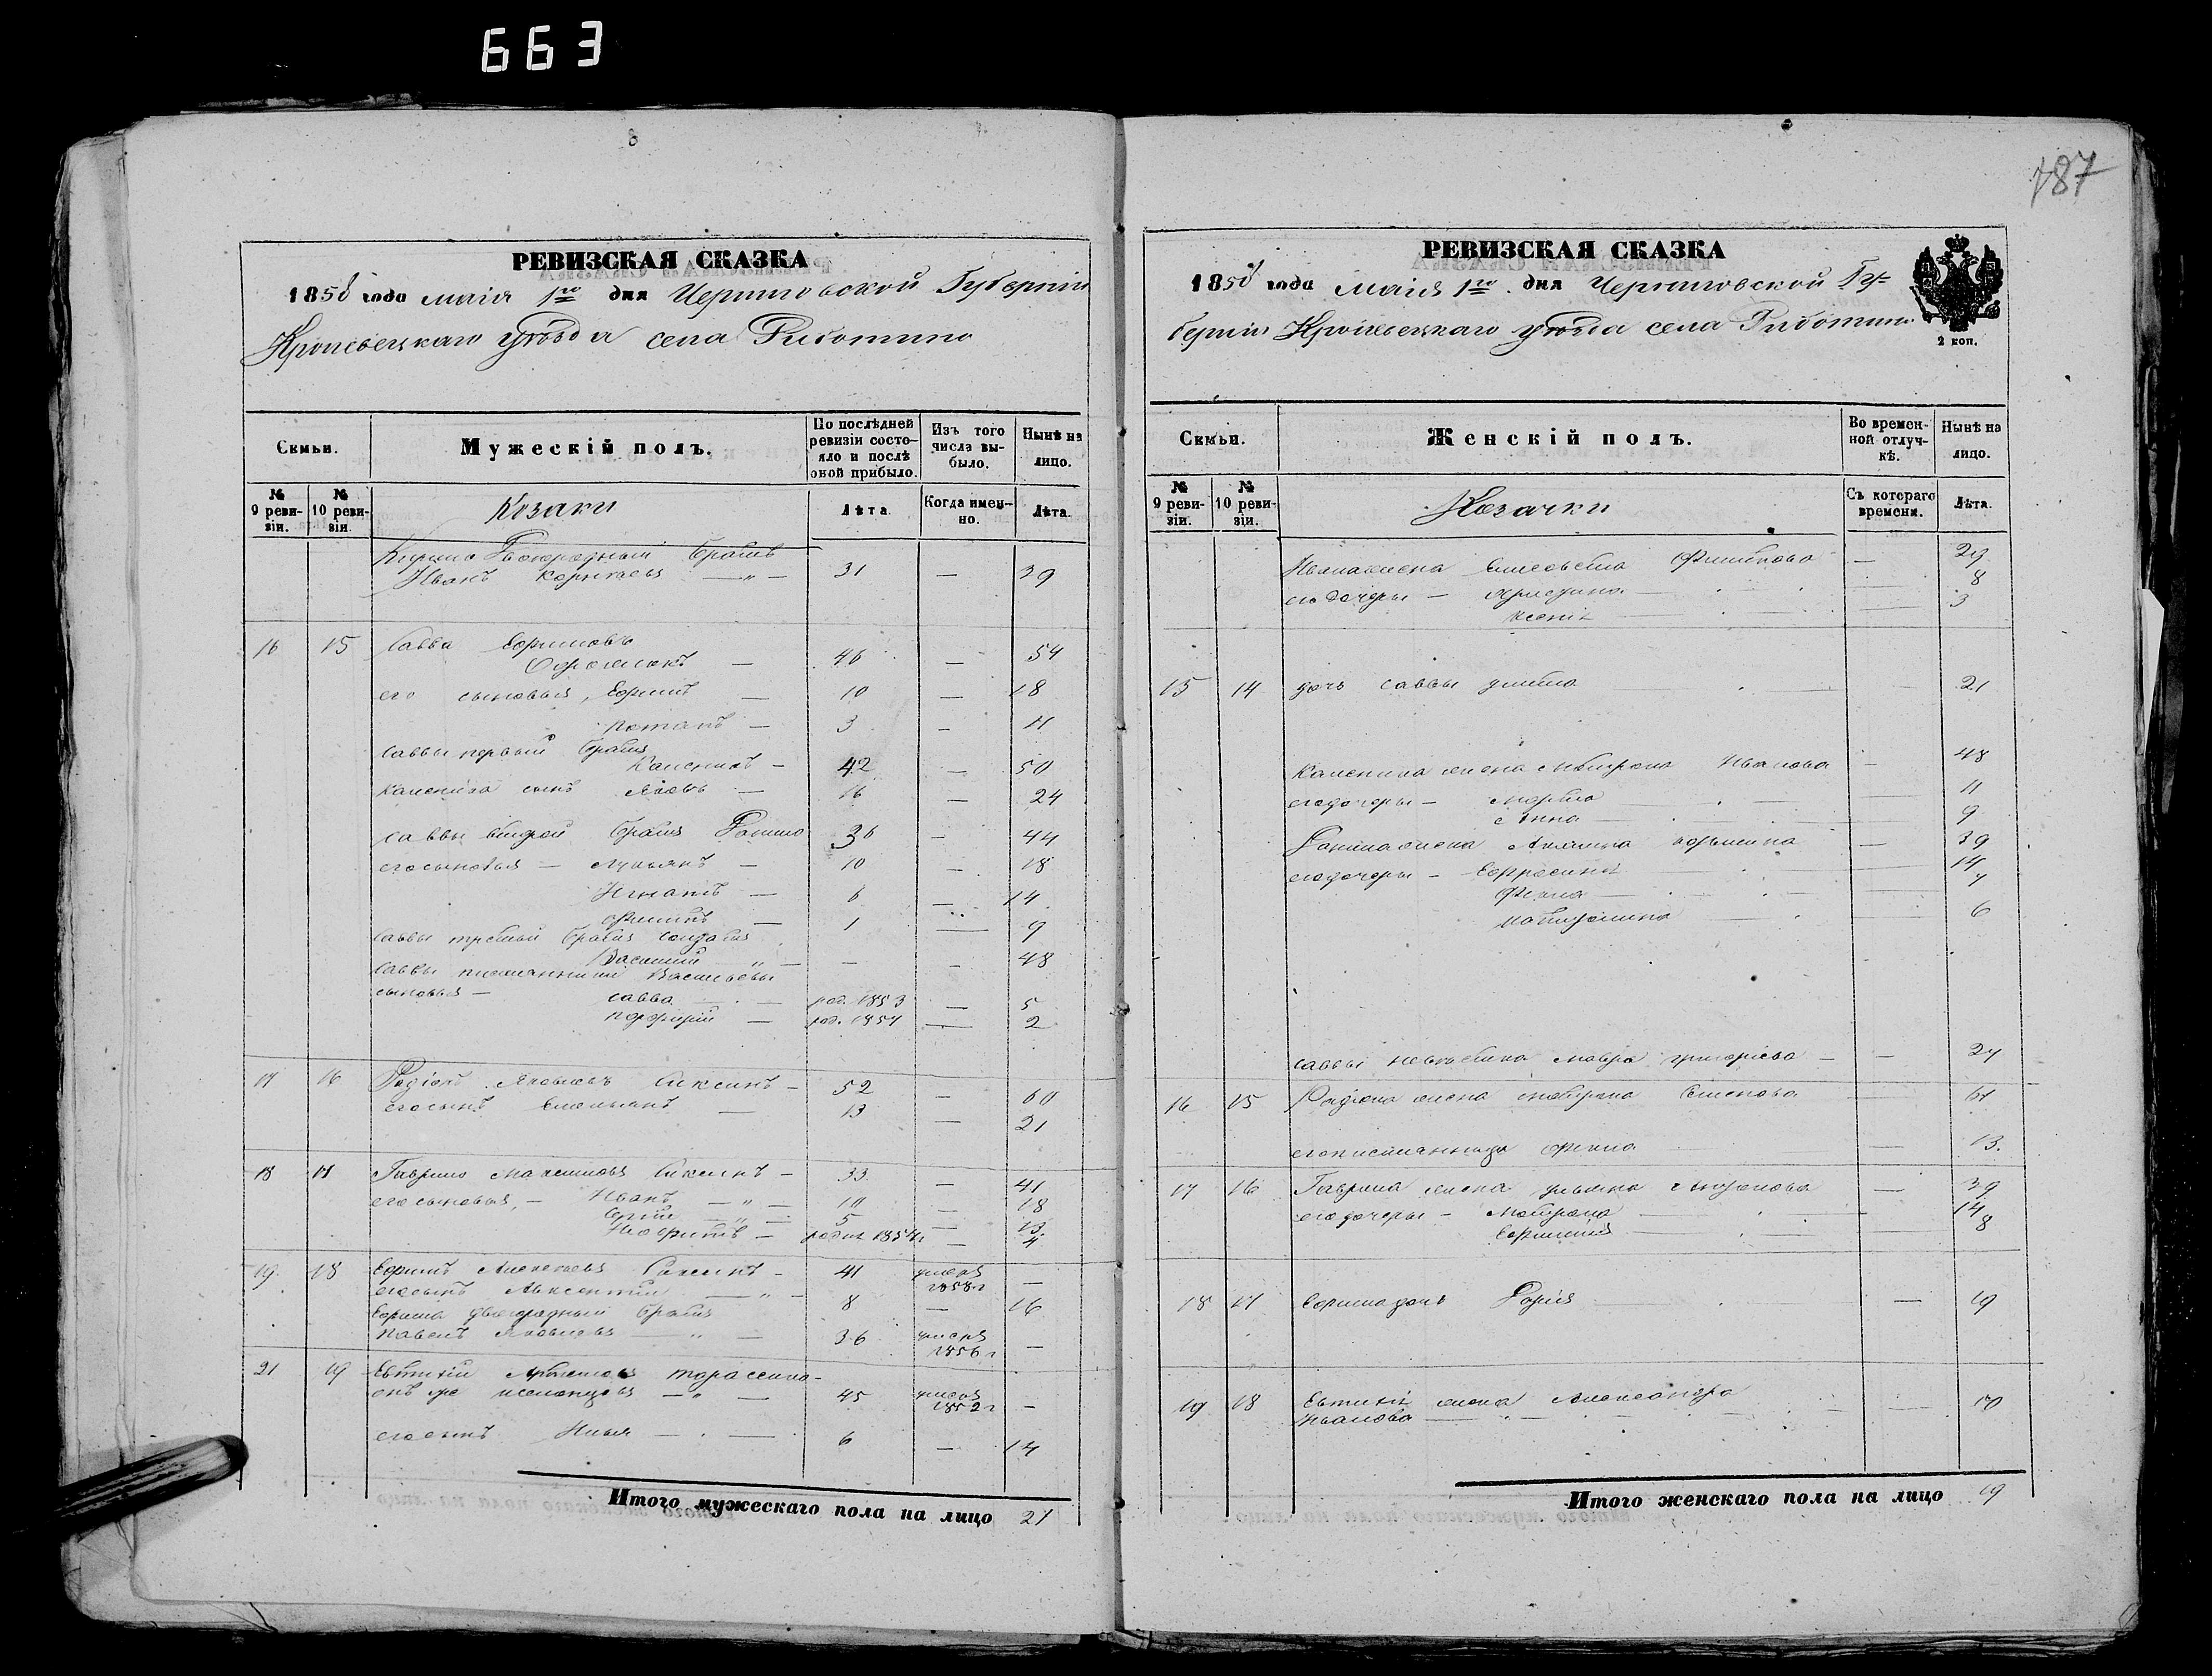 663
8
РЕВИЗСКАЯ СКАЗКА
1858 года маія 1го дня Черниговской Губерніи
Кролевецкаго уѣзда села Риботино
Семьи.
Мужескій полъ.
По послѣдней ревизіи состояло и послѣ оной прибыло.
Изъ того числа выбыло.
Нынѣ на лицо.
№ 9 ревизіи.
№ 10 ревизіи.
Козаки
Лѣта.
Когда именно.
Лѣта.
Кирила Двоюродный братъ
Иванъ Корнѣевъ — 31 — 39
16 15 Савва Ефимовъ
46 — 54
его сыновья, Ефимъ — 10 — 18
Потапъ — 3 — 11
Саввы первый братъ
Калениkъ — 42 — 50
Каленика сынъ Яковъ — 16 — 24
Саввы второй братъ Данило 36 — 44
его сыновья — Лукьянъ — 10 — 18
Игнатъ — 6 — 14
Филипъ — 1 — 9
Саввы третій братъ солдатъ
Василий — — — 48
Саввы племянники Васильевы
сыновья — Савва — род. 1853 — 5
Порфирій — род. 1857 — 2
17 16 Родіонъ Яковлевъ Сиксинъ — 52 — 60
его сынъ Емельянъ — 13 — 21
18 17 Гаврило Максимовъ Сиксинъ — 33 — 41
его сыновья, — Иванъ — 10 — 18
Сергій — 5 — 13
Неофитъ — родил. 1854 г — 4
19 18 Ефимъ Алексѣевъ Сиксинъ — 41 умеръ 1858 г —
его сынъ Авксентий — 8 — 16
Ефима двоюродный братъ
Павелъ Яковлевъ — 36 умеръ 1856 г —
21 19 Евтихій Артемовъ Тарасенко
онъ же — 45 умеръ 1852 г —
его сынъ Илья — 6 — 14
Итого мужескаго пола на лицо 21
187
РЕВИЗСКАЯ СКАЗКА
1858 года маія 1го дня Черниговской Гу-
берніи Кролевецкаго уѣзда села Риботино
2 коп.
Семьи.
Женскій полъ.
Во временной отлучкѣ.
Нынѣ на лицо.
№ 9 ревизіи.
№ 10 ревизіи.
Козачки
Съ котораго времени.
Лѣта.
Ивана жена Елисавета Филипова — 29
его дочери — Христина — 8
Ксенія — 3
15 14 дочь Саввы Улита — 21
Каленика жена Матрона Иванова — 48
его дочери — Марѳа — 11
Анна — 9
Данила жена Акилина Кузьмина — 39
его дочери — Ефросинія — 14
Фекла — 7
6
Саввы невѣстка Мавра Григорьева — 27
16 15 Родіона жена Матрона Семенова 61
его племянница Фекла — 13.
17 16 Гаврила жена Ульяна — 39
его дочери — Матрона — 14
Ефимия — 8
18 17 Ефима дочь Дарія — 19
19 18 Евтихія жена Александра
Иванова — 50
Итого женскаго пола на лицо 19